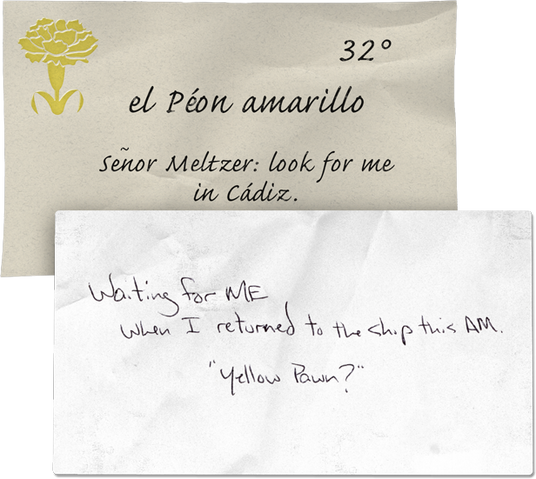 32°
el Péon amarillo
Señor Meltzer: look for me
in Cádiz.
Waiting for ME
when I returned to the ship this AM.
"Yellow Pawn?"